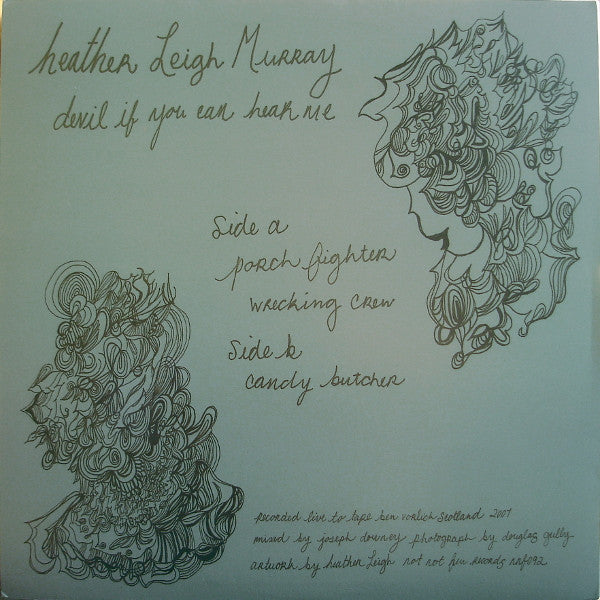 heather Leigh Murray
devil if you can hear me
Side a
porch fighter
wrecking crew
Side b
candy butcher
recorded live to tape ben vorlich Scotland 2007
mixed by joseph downey photograph by douglas gully
artwork by heather Leigh not not fun records nnf092